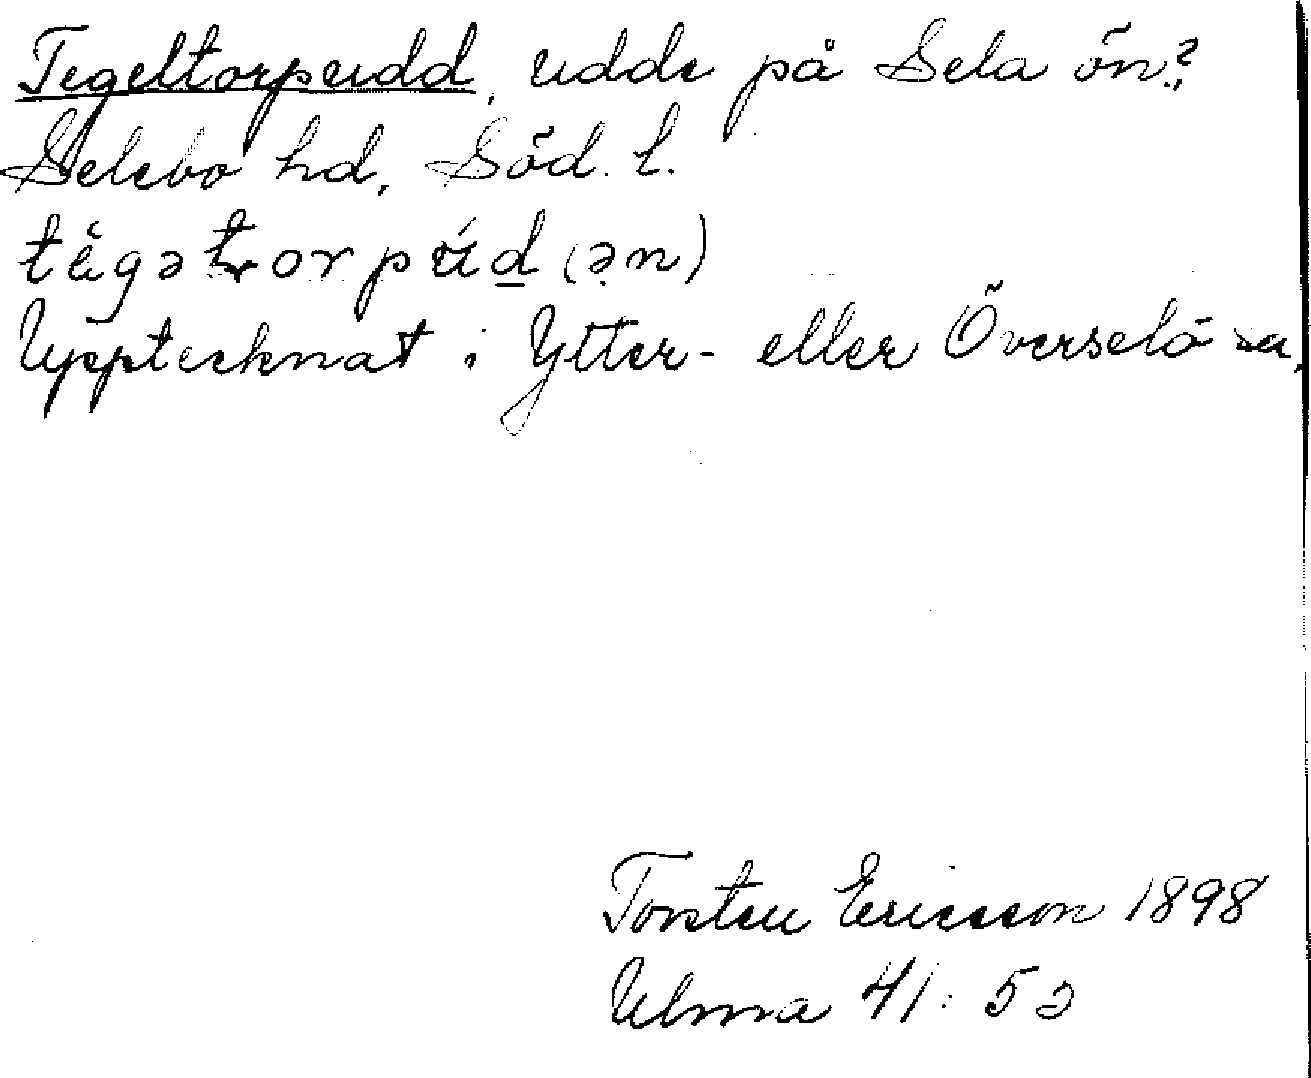 Tegeltorpudd, udde på Sela ön?
Selebo hd, Söd. l.
Upptecknat i Ytter- eller Överselö sn,
Torsten Ericsson 1898
Ulma 41: